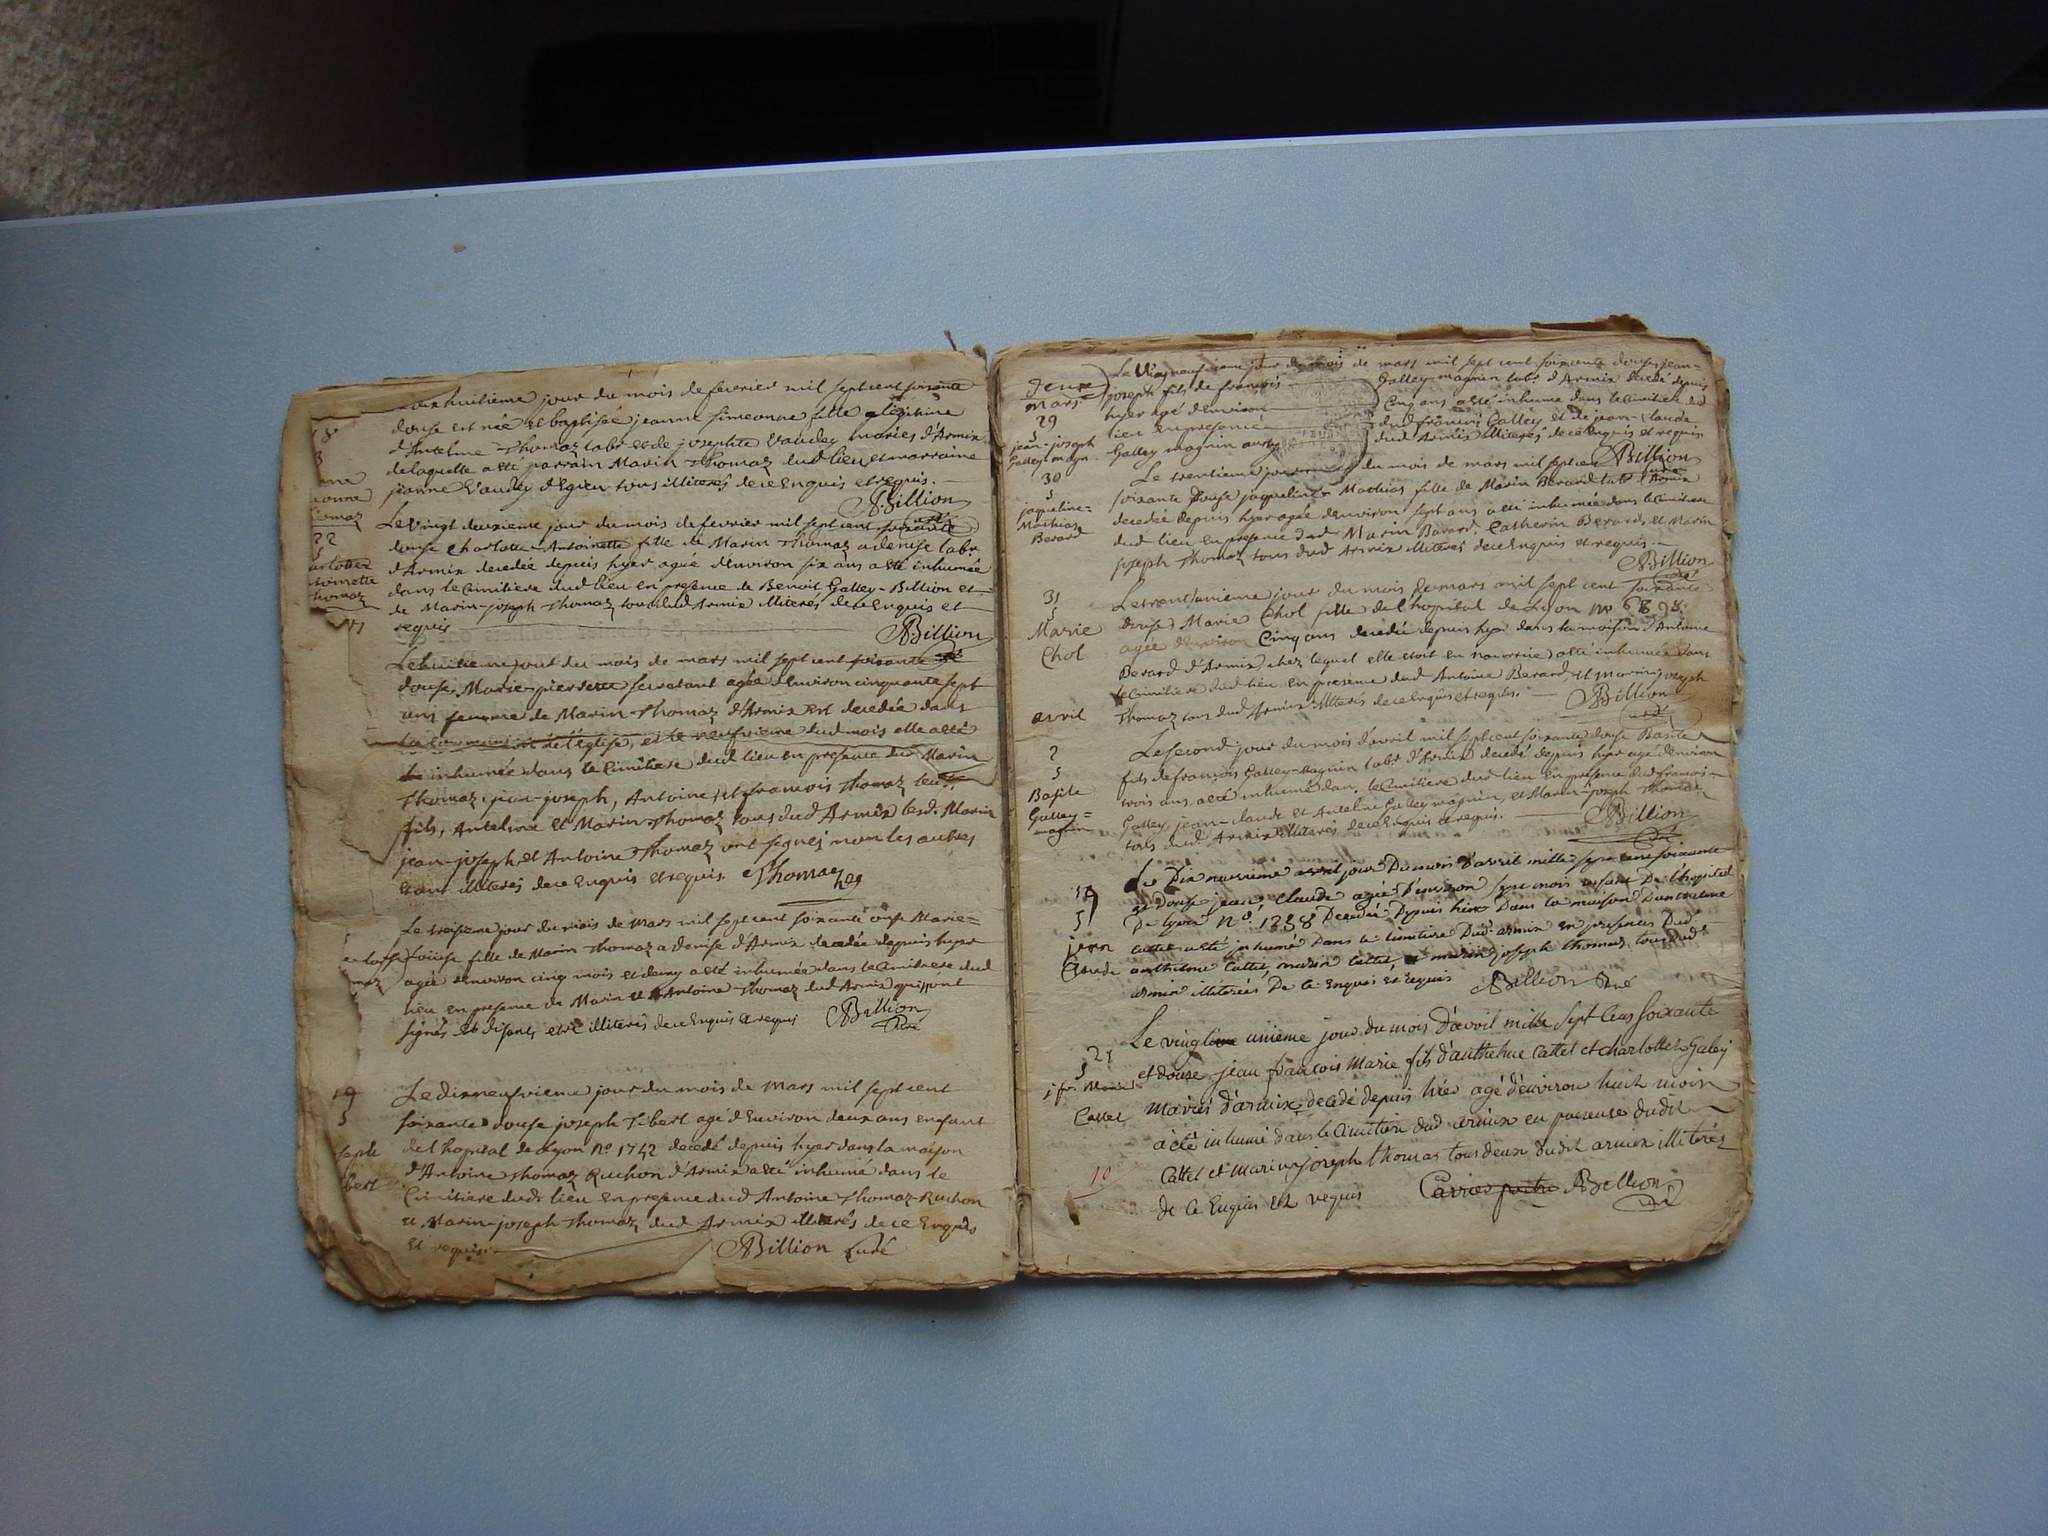 dixhuitieme jour du mois de fevrier mil sept cent soixante
douse est née et baptisée jeanne simeonne fille legitime
d'Antelme Thomaz labr et de josephte Vaudey mariés d'Armix
de laquelle a été parrain Marin Thomaz dud lieu et marraine
jeanne Vaudey d'Egieu tous illiterés de ce Enquis et requis.
ABillion
curé
22
Le vingt deuxieme jour du mois de fevrier mil sept cent soixante
douse Charlotte Antoinette fille de Marin Thomaz adenise labr
d'Armix decedée depuis hyer agée d'environ six ans a été inhumée
dans le Cimitiere dud lieu en presence de Benoit Galley-Billion et
de Marin-joseph Thomaz tous dud Armix illiterés de ce Enquis et
requis
ABillion
Le huitieme jour du mois de mars mil sept cent soixante et
douse, Marie-pierrette agée d'environ cinquante sept
ans femme de Marin Thomaz d'Armix est decedée dans
la communion de l'Eglise, et le neufvieme dud mois elle a été
inhumée dans le Cimitiere dud lieu en presence dud Marin
Thomaz, jean-joseph, Antoine, et francois Thomaz
fils, Antelme et Marin Thomaz tous dud Armix lesd. Marin
jean-joseph et Antoine Thomaz ont signés non les autres
etant illiterés de ce Enquis et requis. Thomaz
Le treisieme jour du mois de Mars mil sept cent soixante douse Marie=
Louise fille de Marin Thomaz adenise d'Armix decedée depuis hyer
agée d'environ cinq mois et demy a été inhumée dans le Cimitiere dud
lieu en presence de Marin et Antoine Thomaz dud Armix qui sont
signés illiterés de ce Enquis et requis ABillion
Curé
19
Le dixneufvieme jour du mois de Mars mil sept cent
soixante douse joseph Tibert agé d'Environ deux ans enfant
de l'hopital de Lyon No 1742 decedé depuis hyer dans la maison
d'Antoine Thomaz Ruchon d'Armix a été inhumé dans le
Cimitiere dud lieu en presence dud Antoine Thomaz-Ruchon
et Marin-joseph Thomaz dud Armix illiterés de ce Enquis
et requis.
ABillion Curé
mars
29
jean-joseph
Galley-magn.
Le Vingneufvieme jour du mois de mars mil sept cent soixante douse, jean=
joseph fils de francois Galley-magnin labr d'Armix decedé depuis
hyer agé d'environ Cinq ans a été inhumé dans le Cimitiere dud
lieu en presence dud francois Galley et de jean-claude
Galley magnin dud Armix illiterés de ce Enquis et requis.
ABillion
curé
30
jaqueline=
Mathias
Berard
Le trentieme jour du mois de mars mil sept cent
soixante douse jaqueline Mathias fille de Marin Berard labr d'Armix
decedée depuis hyer agée d'environ sept ans a été inhumée dans le Cimitiere
dud lieu en presence dud Marin Berard, Catherin Berard, et Marin
joseph Thomaz tous dud Armix illiterés de ce Enquis et requis.
ABillion
curé
31
Marie
Chol
Le trentunieme jour du mois de mars mil sept cent soixante
douse Marie Chol fille de l'hopital de Lyon no
agée d'environ Cinq ans decedée depuis hyer dans la maison d'Antoine
Berard d'Armix chez lequel elle etoit en nourrice a été inhumée dans
le Cimitiere dud lieu en presence dud Antoine Berard, et Marin joseph
Thomaz tous dud Armix illiterés de ce Enquis et requis.
ABillion
curé
avril
2
Basile
Galley=
magnin
Le second jour du mois d'avril mil sept cent soixante douse Basile
fils de francois Galley-Magnin labr d'Armix decedé depuis hyer agé d'environ
trois ans a été inhumé dans le Cimitiere dud lieu en presence dud francois
Galley, jean-claude et Antelme Galley magnin, et Marin-joseph Thomaz
tous dud Armix illiterés de ce Enquis et requis.
ABillion
curé
19
jean
Claude
Le Dix neuvieme jour Du mois D'avril mille sept cent soixante
et douse jean Claude agée D'environ sept mois enfant De L'hopital
De lyon No. 1358 Decedée Depuis hier Dans la maison D'anthelme
Cattet a été inhumé Dans le Cimitiere Dud. armix en presence Dud
anthelme Cattet, marin Cattet, et marin joseph thomas tous Dud
armix illiterés De ce enquis et requis ABillion Curé
21
j. fr. Marie
Cattet
Le vingt unieme jour du mois D'avril mille sept Cens soixante
et douze jean françois Marie fils d'anthelme Cattet et charlotte Galey
Mariés d'armix decedé depuis hier agé d'environ huit mois
a été inhumé dans le Cimitiere dud armix en presence dudit
Cattet et Marin joseph thomas tous deux dudit armix illiterés
de ce Enquis et requis ABillion
curé
10